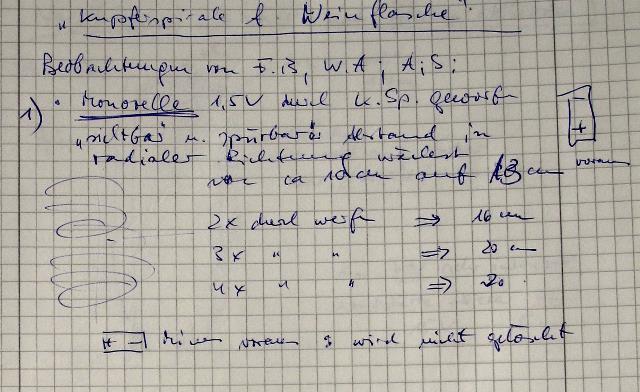 "Kupferspirale & Weinflasche"
Beobachtungen von F.B, W.A; A;S;
1) • Monozelle 1,5V durch K.Sp. geworfen
"sichtbar u. spürbar" Abstand in
radialer Richtung wächst
von ca 10cm auf 13 cm
- +
voraus
2x durch werfen ⇒ 16 cm
3x " " ⇒ 20 cm
4x " " ⇒ 20
+ - Minus voraus : wird nicht gelöscht